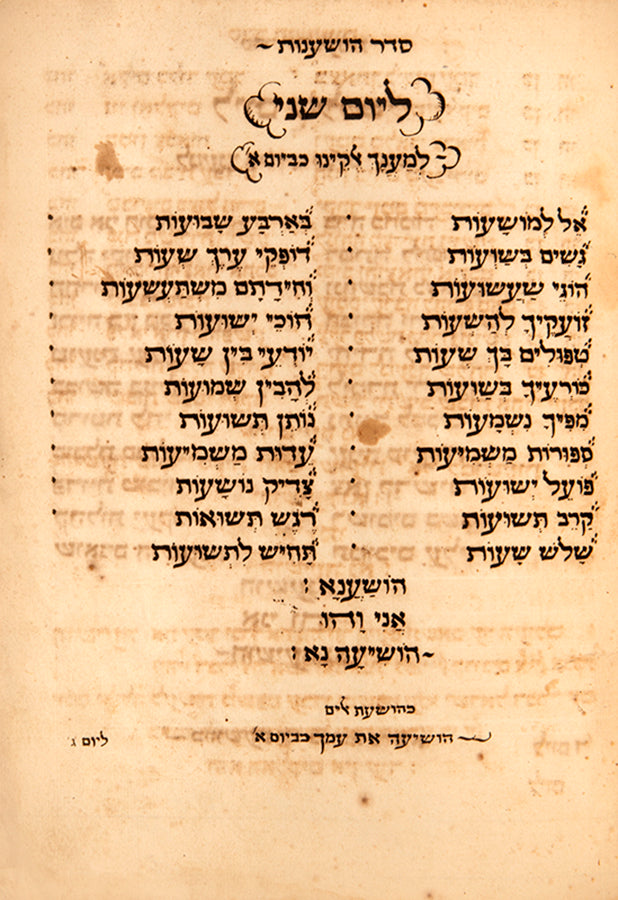 סדר הושענות
ליום שני
לְמַעֲנָךְ ﭏקינו כביום א'
אֵל לְמוֹשָׁעוֹת · בְּאַרְבַּע שָׁבוּעוֹת ·
גָּשִׁים בְּשַׁוְעוֹת · דּוֹפְקֵי עֶרֶךְ שׁוּעוֹת ·
הוֹגֵי שַׁעֲשׁוּעוֹת · וְחִידֹתָם מִשְׁתַּעְשְׁעוֹת ·
זוֹעֲקֶיךָ לְהַשְׁעוֹת · חוֹכֵי יְשׁוּעוֹת ·
טְפוּלִים בָּךְ שְׁעוֹת · יוֹדְעֵי בִּין שָׁעוֹת ·
כּוֹרְעֶיךָ בְּשַׁוְעוֹת · לְהָבִין שְׁמוּעוֹת ·
מִפִּיךָ נִשְׁמָעוֹת · נוֹתֵן תְּשׁוּעוֹת ·
סְפוּרוֹת מַשְׁמִיעוֹת · עֵדוּת מַשְׁמִיעוֹת ·
פּוֹעֵל יְשׁוּעוֹת · צַדִּיק נוֹשָׁעוֹת ·
קִרְיַת תְּשׁוּעוֹת · רֶגֶשׁ תְּשׁוּאוֹת ·
שָׁלֹשׁ שָׁעוֹת · תָּחִישׁ לִתְשׁוּעוֹת
הוֹשַׁעֲנָא :
אֲנִי וָהוּ
הוֹשִׁיעָה נָא :
כהושעת ﭏים
הושיעה את עמך כביום א'
ליום ג'